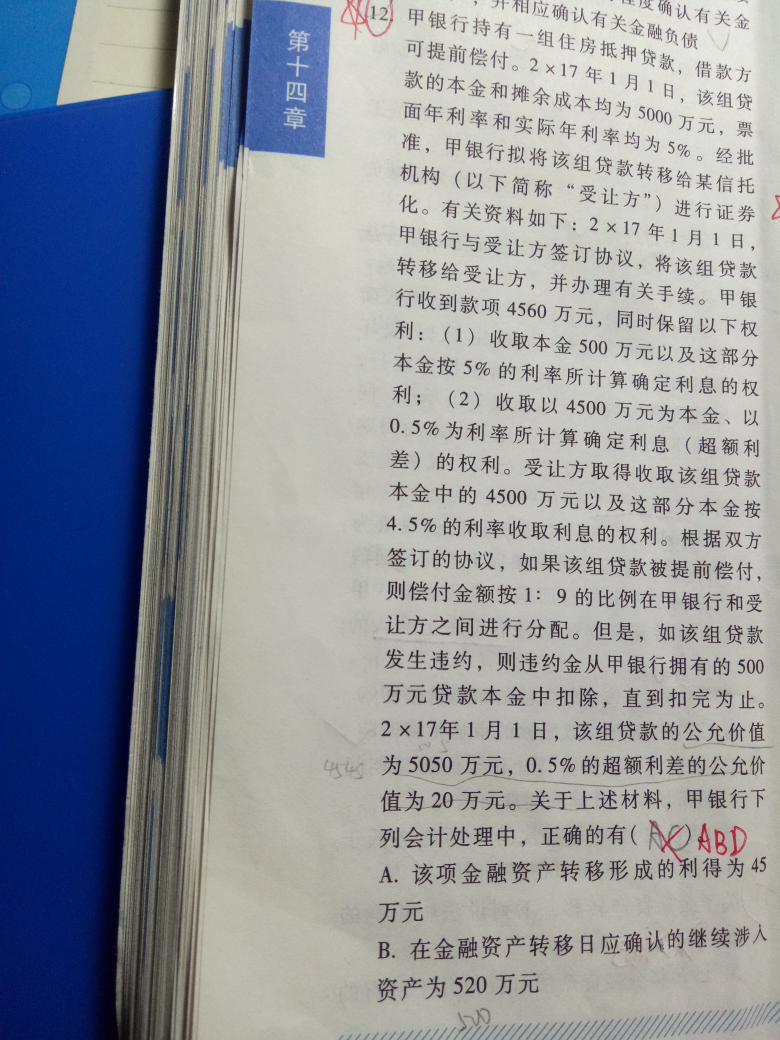 第十四章
度确认有关金
并相应确认有关金融负债
12.
甲银行持有一组住房抵押贷款，借款方
可提前偿付。2×17年1月1日，该组贷
款的本金和摊余成本均为5000万元，票
面年利率和实际年利率均为5%。经批
准，甲银行拟将该组贷款转移给某信托
机构（以下简称“受让方”）进行证券
化。有关资料如下：2×17年1月1日，
甲银行与受让方签订协议，将该组贷款
转移给受让方，并办理有关手续。甲银
行收到款项4560万元，同时保留以下权
利：（1）收取本金500万元以及这部分
本金按5%的利率所计算确定利息的权
利；（2）收取以4500万元为本金、以
0.5%为利率所计算确定利息（超额利
差）的权利。受让方取得收取该组贷款
本金中的4500万元以及这部分本金按
4.5%的利率收取利息的权利。根据双方
签订的协议，如果该组贷款被提前偿付，
则偿付金额按1：9的比例在甲银行和受
让方之间进行分配。但是，如该组贷款
发生违约，则违约金从甲银行拥有的500
万元贷款本金中扣除，直到扣完为止。
2×17年1月1日，该组贷款的公允价值
4545
为5050万元，0.5%的超额利差的公允价
值为20万元。关于上述材料，甲银行下
列会计处理中，正确的有(AC)。ABD
A. 该项金融资产转移形成的利得为45
万元
B. 在金融资产转移日应确认的继续涉入
资产为520万元
520